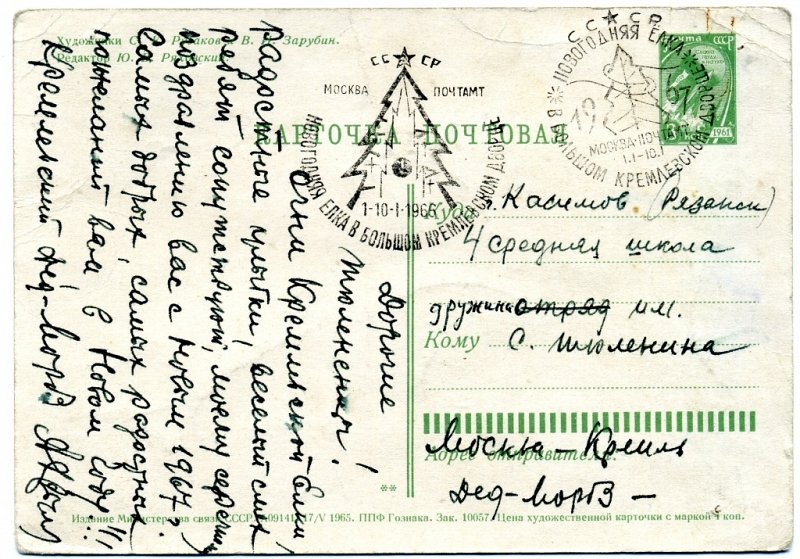 Художники С. К. Русаков и В. И. Зарубин.
Редактор Ю.
СС СР
МОСКВА ПОЧТАМТ
1-10-I-1966
НОВОГОДНЯЯ ЕЛКА В БОЛЬШОМ КРЕМЛЕВСКОМ ДВОРЦЕ
СС СР
НОВОГОДНЯЯ ЕЛКА
В БОЛЬШОМ КРЕМЛЕВСКОМ ДВОРЦЕ
19 67
МОСКВА-ПОЧТАМТ
1.1-10.1
ПОЧТА СССР
1961
КАРТОЧКА ПОЧТОВАЯ
Куда г. Касимов (Рязанск)
4 средняя школа
дружина отряд им.
Кому С. Тюленина
Москва – Кремль
Адрес отправителя:
Дед-Мороз –
Дорогие
тюленинцы!
Огни Кремлевской ёлки,
радостные улыбки, веселый смех
ребят сопутствуют моему сердечному
поздравлению вас с Новым 1967!
Самых добрых, самых радостных
пожеланий вам в Новом годе!!!
Кремлевский Дед-Мороз
**
Издание Министерства связи СССР. 17/V 1965. ППФ Гознака. Зак. 10057. Цена художественной карточки с маркой 4 коп.